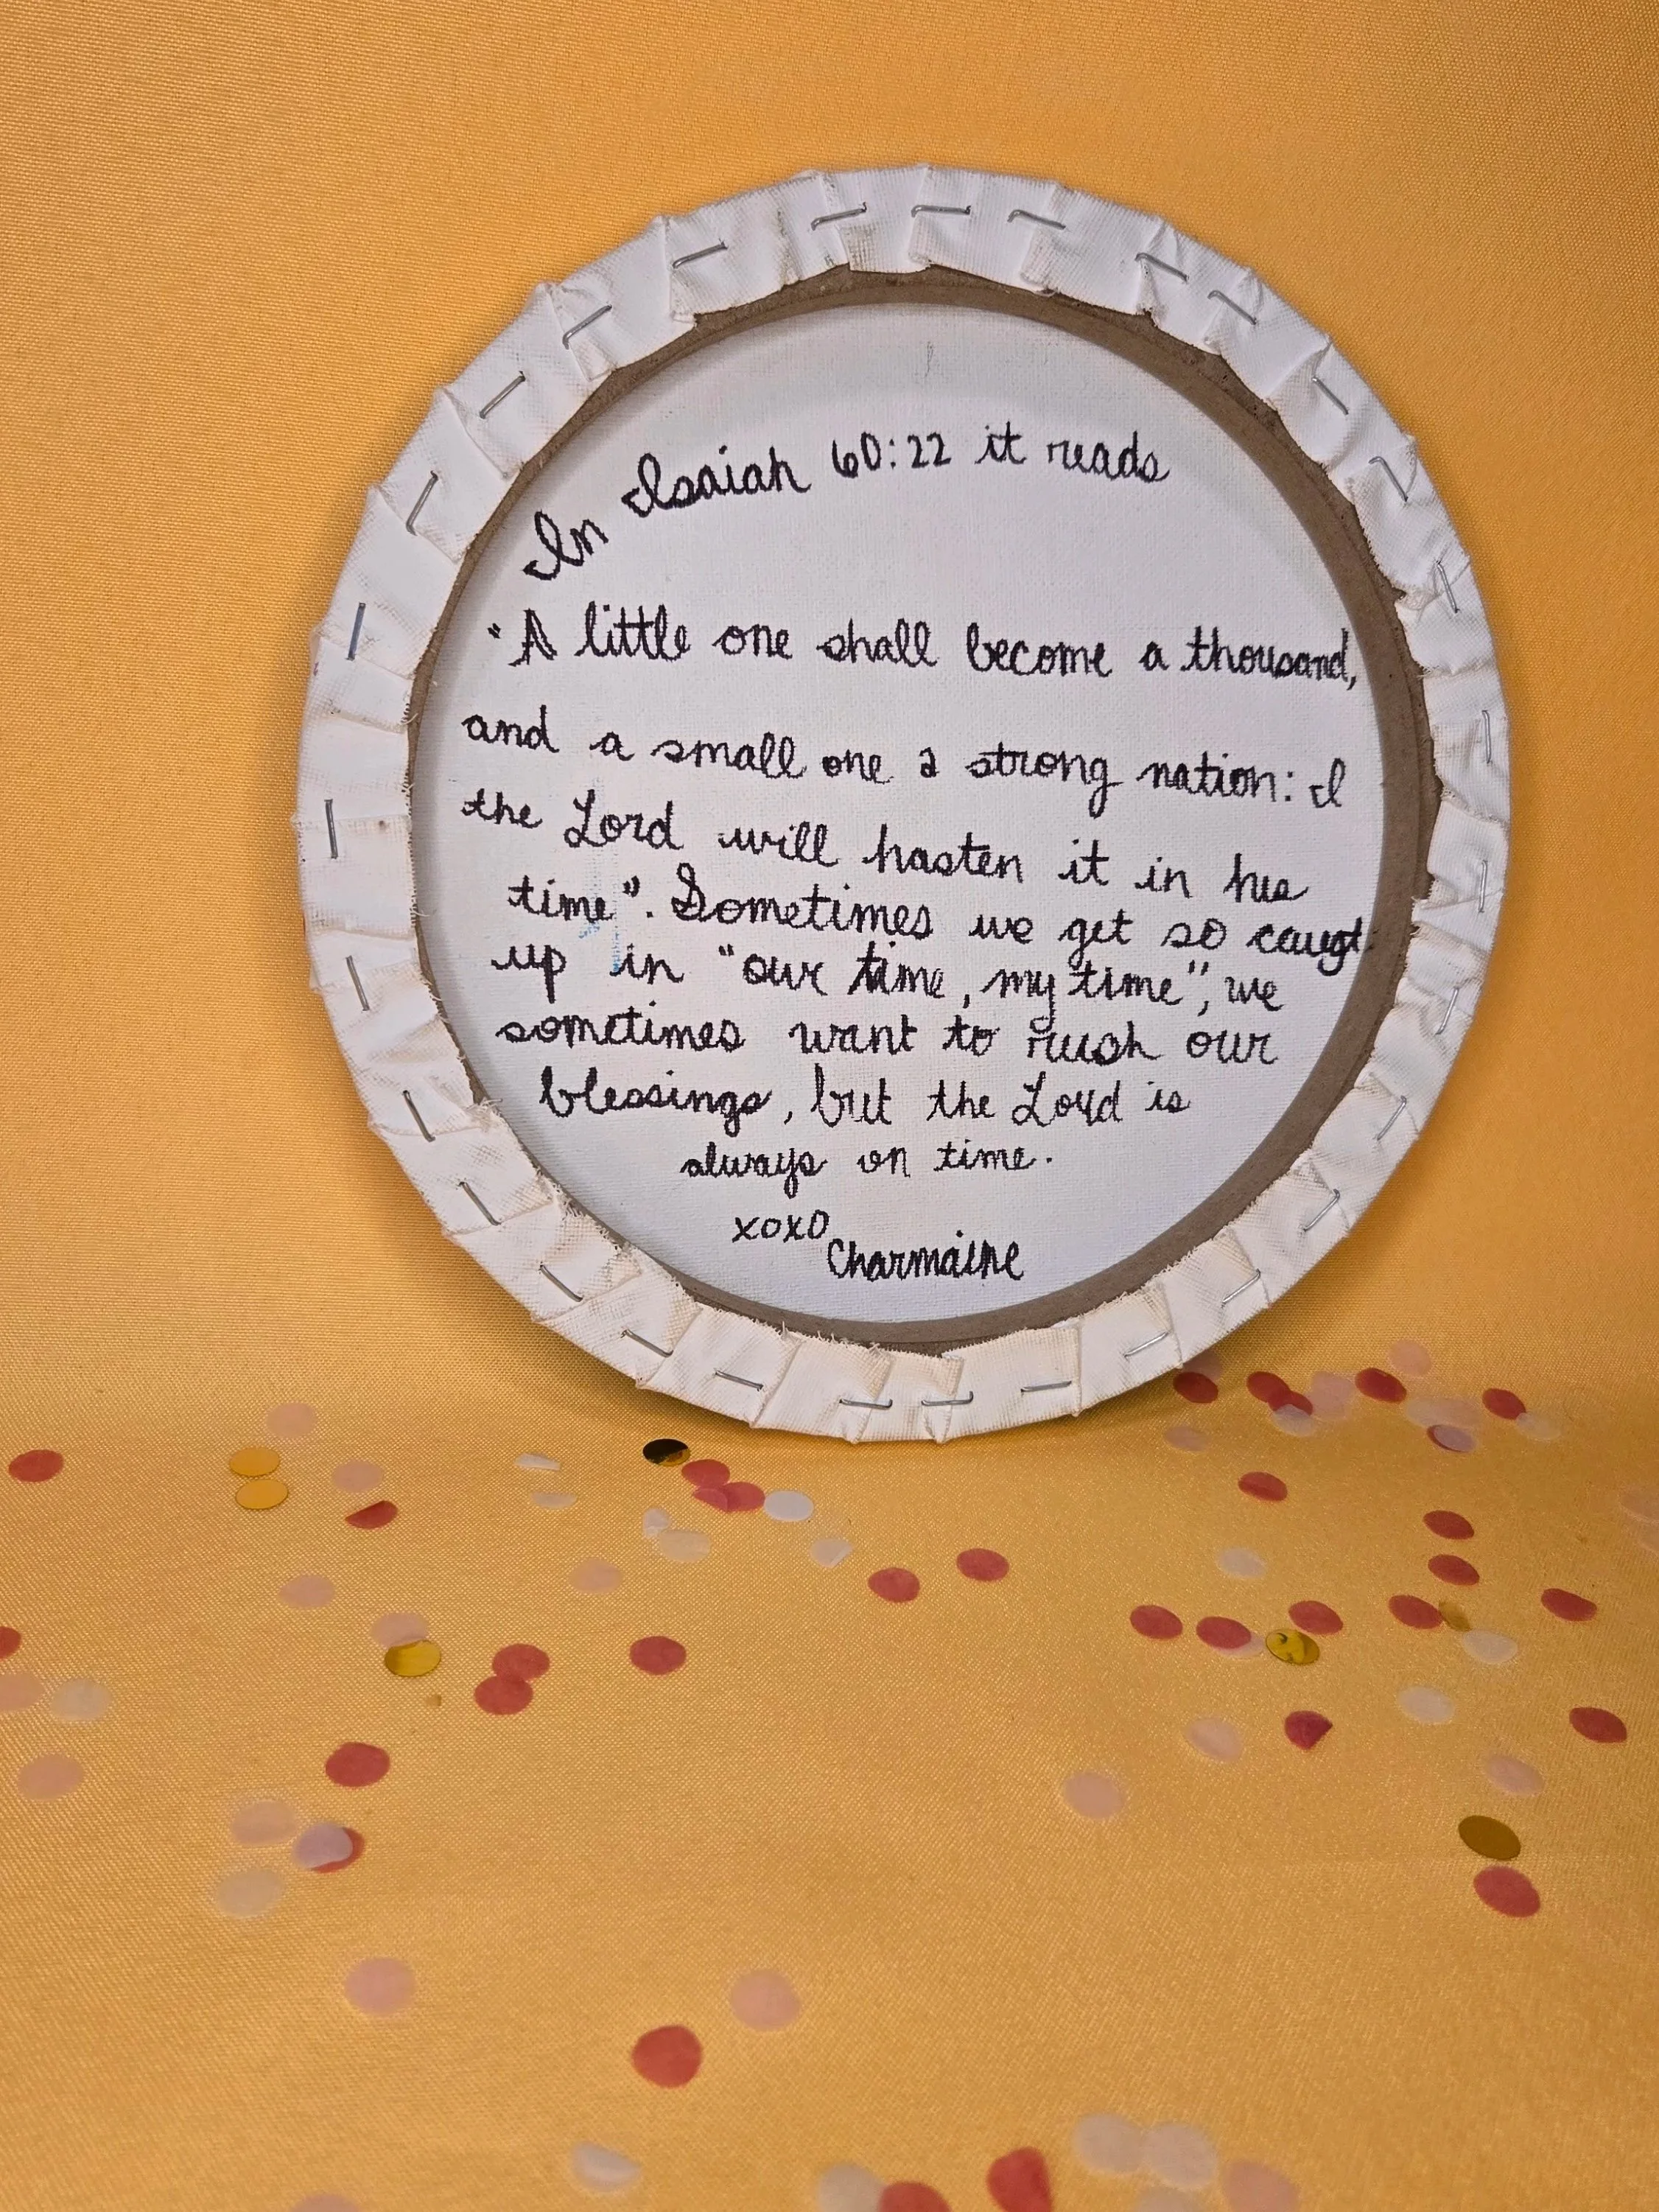 In Isaiah 60:22 it reads
"A little one shall become a thousand,
and a small one a strong nation: I
the Lord will hasten it in his
time". Sometimes we get so caugt
up in "our time, my time", we
sometimes want to rush our
blessings, but the Lord is
always on time.
xoxo
Charmaine